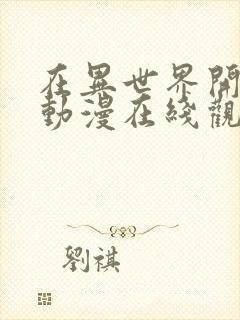 在異世界開
動漫在綫觀
劉祺